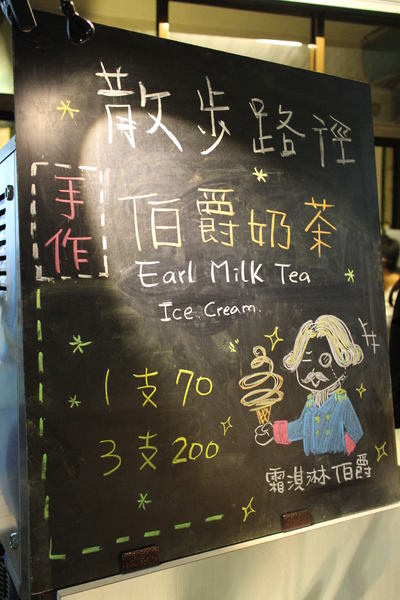 散步路徑
手作
伯爵奶茶
Earl Milk Tea
Ice Cream.
1支70
3支200
霜淇淋伯爵